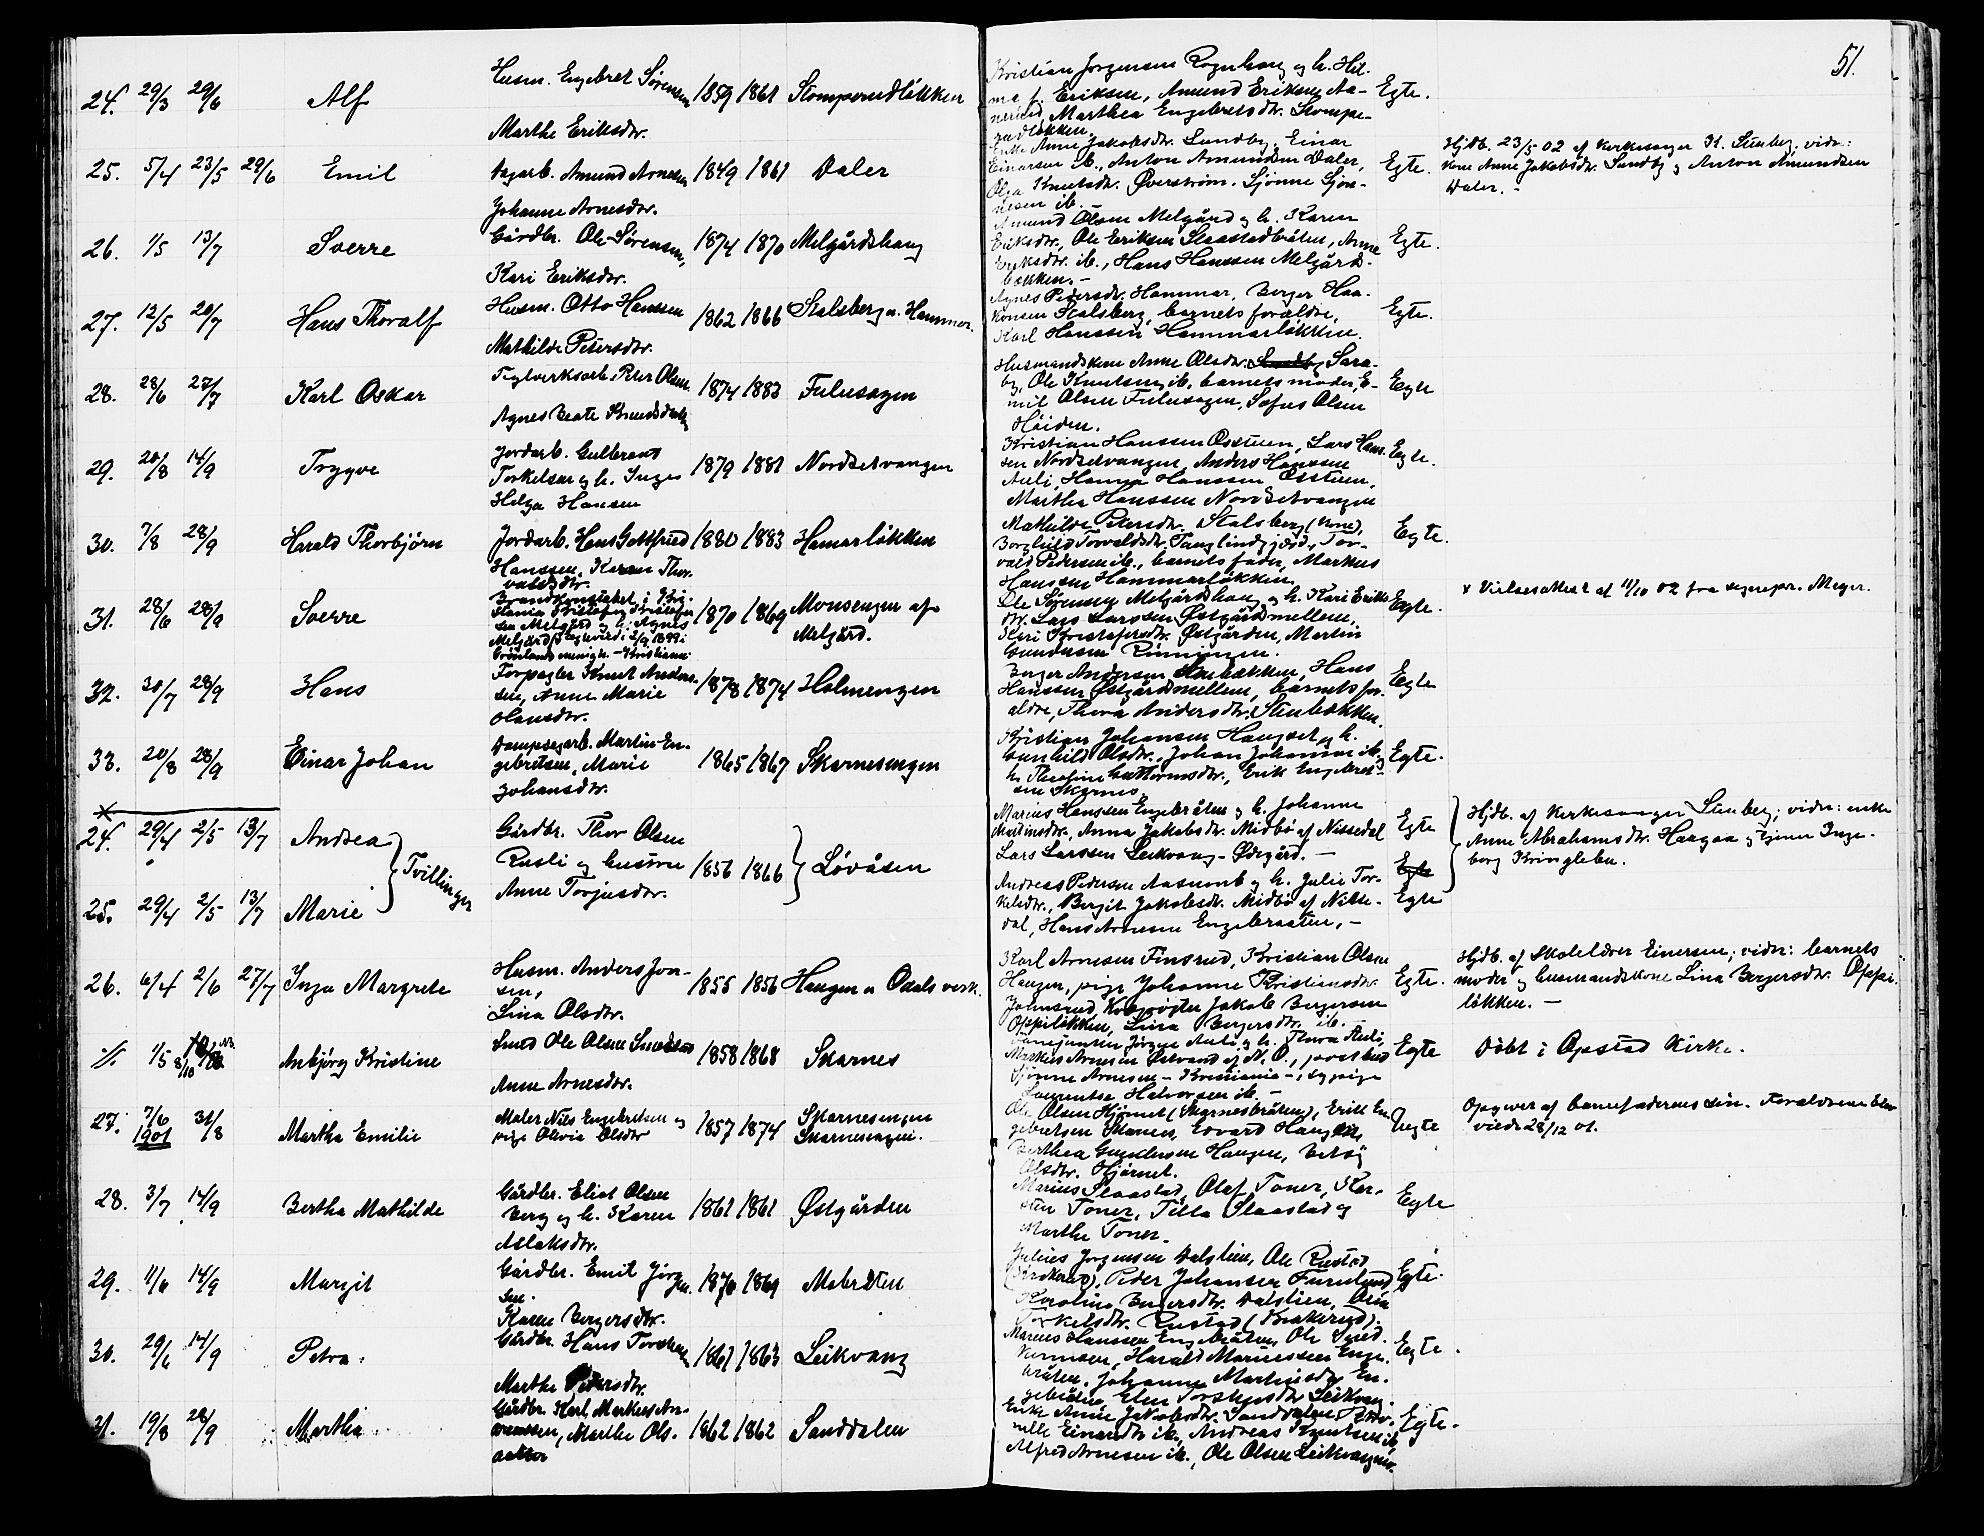 51.
24. 29/3 29/6 Alf Husm. Engebret Sørensen 1859 1861 Stomperudløkken
Marthe Eriksdtr.
Kristian Jørgensen Rognhaug og h. Hil-
ma f. Eriksen, Amund Eriksen Aa-
nerud, Marthea Engebretsdtr. Stompe-
rudløkken. Egte.
25. 5/4 23/5 29/6 Emil Dagarb. Amund Arnesen 1849 1861 Daler
Johanne Arnesdtr.
Enke Anne Jakobsdtr. Sundby, Einar
Einarsen ib., Anton Amundsen Daler,
Olga Knutsdtr. Øverstrøm. Sjønne Sjøn-
nesen ib. Egte.
Hjdb. 23/5 02 af kirkesanger K. Stuberg; vidn:
kone Anne Jakobsdtr. Sundby og Anton Amundsen
Daler. -
26. 1/5 13/7 Sverre Gårdbr. Ole Sørensen, 1874 1870 Melgårdshaug
Kari Eriksdtr.
Amund Olsen Melgård og h. Karen
Eriksdtr., Ole Eriksen Slaastadbråten, Anne
Eriksdtr. ib., Hans Hanssen Melgård-
bakken. - Egte.
27. 12/5 20/7 Hans Thoralf Husm. Otto Hanssen 1862 1866 Stalsberg u. Hammer.
Mathilde Petersdtr.
Agnes Petersdtr. Hammar, Berger Haa-
konsen Stalsberg, barnets forældre,
Karl Hanssen Hammarløkken. Egte.
28. 28/6 27/7 Karl Oskar Teglverksarb. Peter Olsen 1874 1883 Fulusagen
Agnes Beate Knudsdtr.
Husmandskone Anne Olsdtr. Sara-
by, Ole Knutsen ib., barnets moder, E-
mil Olsen Fulusagen, Sofus Olsen
Høiden. Egte
29. 20/8 14/9 Trygve Jordarb. Gulbrand
Torkelsen og h. Inga 1879 1881 Nordsetvangen
Helga Hansen
Kristian Hanssen Osstuen, Lars Hans-
sen Nordsetvangen, Anders Hanssen
Auli, Hanna Hanssen Osstuen,
Martha Hanssen Nordsetvangen Egte.
30. 7/8 28/9 Harald Thorbjørn Jordarb. Hans Gottfried 1880 1883 Hamarløkken
Hanssen, Karen Thor-
valdsdtr.
Mathilde Petersdtr. Stalsberg (kone),
Borghild Torvaldsdtr. Tanglindgjærd, Tor-
vald Pedersen ib., barnets fader, Markus
Hanssen Hammarløkken. Egte.
31. 28/6 28/9 Sverre Brandkonstabel i Kri-
stiania Kristofer Kristofer-
sen Melgård og h. Agnes 1870 1869 Monsengen af
Melgård. x Viet 2/9 1899 i
Grønlands menigh. - Kristiania. Melgård.
Ole Sørensen Melgårdshaug og h. Kari Eriks-
dtr., Lars Larssen Østgårdmellem,
Kari Kristofersdtr. Østgården, Martin
Gundersen Rønningen. Egte.
x Vielsesattest af 11/10 02 fra sognepr. Meyer.
32. 30/7 28/9 Hans Forpagter Knut Anders-
sen, Anne Marie 1878 1874 Holmengen
Hansdtr.
Berger Andersen Stenbækken, Hans
Hanssen Østgårdmellem, barnets for-
ældre, Thora Andersdtr. Stenbækken. Egte
33. 20/8 28/9 Einar Johan Dampsagarb. Martin En-
gebretsen, Marie 1865 1867 Skarnesengen
Johansdtr.
Kristian Johansen Haugset og h.
Gunhild Olsdtr., Johan Johannsen ib. og
h. Thorine Guttormsdtr., Erik Engebret-
sen Skarnes. Egte.
24. 29/4 2/5 13/7 Andrea } Tvillinger Gårdbr. Thor Olsen
Rusli og hustru 1856 1866 } Løvåsen
Anne Torjusdtr.
Marius Hanssen Engebråten og h. Johanne
Martinsdtr., Anna Jakobsdtr. Midbø af Nittedal
Lars Larssen Leikvang-Ødegård. - Egte
Hjdb. af kirkesanger Stuberg; vidn: enke
Anne Abrahamsdtr. Haagaa og tjener Inge-
borg Kringlebu.
25. 29/4 2/5 13/7 Marie
Andreas Pedersen Aasnæs og h. Julie Tor-
kelsdtr., Bergit Jakobsdtr. Midbø af Nitte-
dal, Hans Arnesen Engebraaten. - Egte
26. 6/4 2/6 27/7 Inga Margrete Husm. Anders Jon-
sen, 1855 1856 Haugen u. Odals verk.
Lina Olsdtr.
Karl Arnesen Finsrud, Kristian Olsen
Haugen, pige Johanne Kristiansdtr.
Johnsrud, Jakob Bergersen
Oppiløkken, Lina Bergersdtr. ib. - Egte.
Hjdb. af skolelærer Einersen; vidn: barnets
moder og husmandskone Lina Bergersdtr. Oppi-
løkken. -
1/5 8/10 Anbjørg Kristine Smed Ole Olsen 1858 1868 Skarnes
Anne Arnesdtr.
Jørgen Auli og h. Thora Auli,
Markus Arnesen Østvand af N. O.,
Sjønne Arnesen - Kristiania -, sypige
Laurentse Halvorsen ib. - Egte
Døbt i Opstad kirke.
27. 7/6 1901 31/8 Martha Emilie Maler Nils Engebretsen og 1857 1874 Skarnesengen
pige Olivia Olsdtr Skarnesengen.
Ole Olsen Hjørnet (Skarnesbråten), Erik En-
gebretsen Skarnes, Edvard Haugen,
Berthea Gundersen Haugen, Betsy
Olsdtr. Hjørnet. Uegte
Opgivet af barnefaderen sin. Forældrene blev
viede 28/12 01.
28. 3/7 14/9 Bertha Mathilde Gårdbr. Eliot Olsen
Berg og h. Karen 1861 1861 Østgården
Aslaksdtr.
Marius Slaastad, Olaf Toner, Kar-
sten Toner, Tilla Slaastad og
Marthe Toner. Egte
29. 11/6 14/9 Margit Gårdbr. Emil Jørgen-
sen. 1870 1869 Mobråten
Karen Bergersdtr.
Julius Jørgensen Dalslien, Ole Rustad
(Krakerud), Peder Johansen Furulund,
Karoline Bergersdtr. Dalslien, Olea
Torkelsdtr. Rustad (Krakerud). Egte.
30. 29/6 14/9 Petra Gårdbr. Hans Torstensen 1861 1863 Leikvang
Marthe Pedersdtr.
Marius Hanssen Engebråten, Ole Syver-
Harald Mariussen Enge-
bråten, Johanne Martinsdtr. En-
gebråten, Elen Torstensdtr. Leikvang. Egte.
31. 19/8 28/9 Martha Gårdbr. Karl Markus Ar-
nessen, Marthe Ols- 1862 1862 Sanddalen
datter
Enke Anne Jakobsdtr. Sanddalen, Per-
nille Einarsdtr. ib., Andreas Knutsen ib.,
Alfred Arnesen ib., Ole Olsen Leikvangen. Egte.